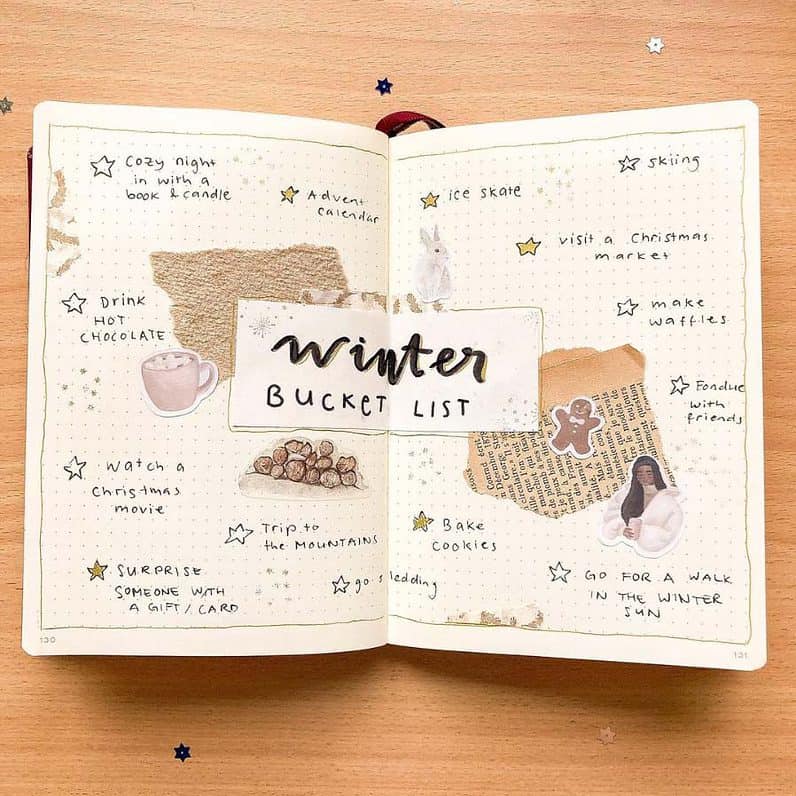 Cozy night
in with a
book & candle
Advent
calendar
Drink
HOT
CHOCOLATE
Winter
BUCKET LIST
Watch a
Christmas
movie
Trip to
the MOUNTAINS
SURPRISE
SOMEONE WITH
A GIFT / CARD
go sledding
130
ice skate
skiing
visit a Christmas
market
make
waffles
Fondue
with
friends
Bake
cookies
GO FOR A WALK
IN THE WINTER
SUN
131